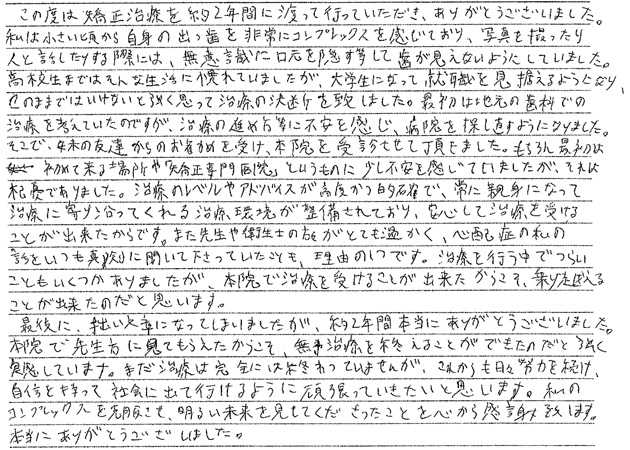 この度は矯正治療を約2年間に渡って行っていただき、ありがとうございました。
私は小さい頃から自身の出っ歯を非常にコンプレックスを感じており、写真を撮ったり
人と話したりする際には、無意識に口元を隠す等して歯が見えないようにしていました。
高校生まではそんな生活に慣れていましたが、大学生になって就職を見据えるようになり、
このままではいけないと強く思って治療の決断を致しました。最初は地元の歯科での
治療を考えていたのですが、治療の進め方等に不安を感じ、病院を探し直すようになりました。
そこで、友達からのお勧めを受け、本院を受診させて頂きました。もちろん最初は
初めて来る場所や「矯正専門医院」というものに少し不安を感じていましたが、それは
杞憂でありました。治療のレベルやアドバイスが高度かつ的確で、常に親身になって
治療に寄り沿ってくれる治療環境が整備されており、安心して治療を受ける
ことが出来たからです。また先生や衛生士の方がとても温かく、心配症の私の
話をいつも真剣に聞いて下さっていたことも、理由の1つです。治療を行う中でつらい
こともいくつかありましたが、本院で治療を受けることが出来たからこそ、乗り越える
ことが出来たのだと思います。
最後に、拙い文章になってしまいましたが、約2年間本当にありがとうございました。
本院で先生方に見てもらえたからこそ、無事治療を終えることができたのだと強く
実感しています。まだ治療は完全には終わっていませんが、これからも日々努力を続け、
自信を持って社会に出て行けるように頑張っていきたいと思います。私の
コンプレックスを克服させ、明るい未来を見せてくださったことを心から感謝致します。
本当にありがとうございました。